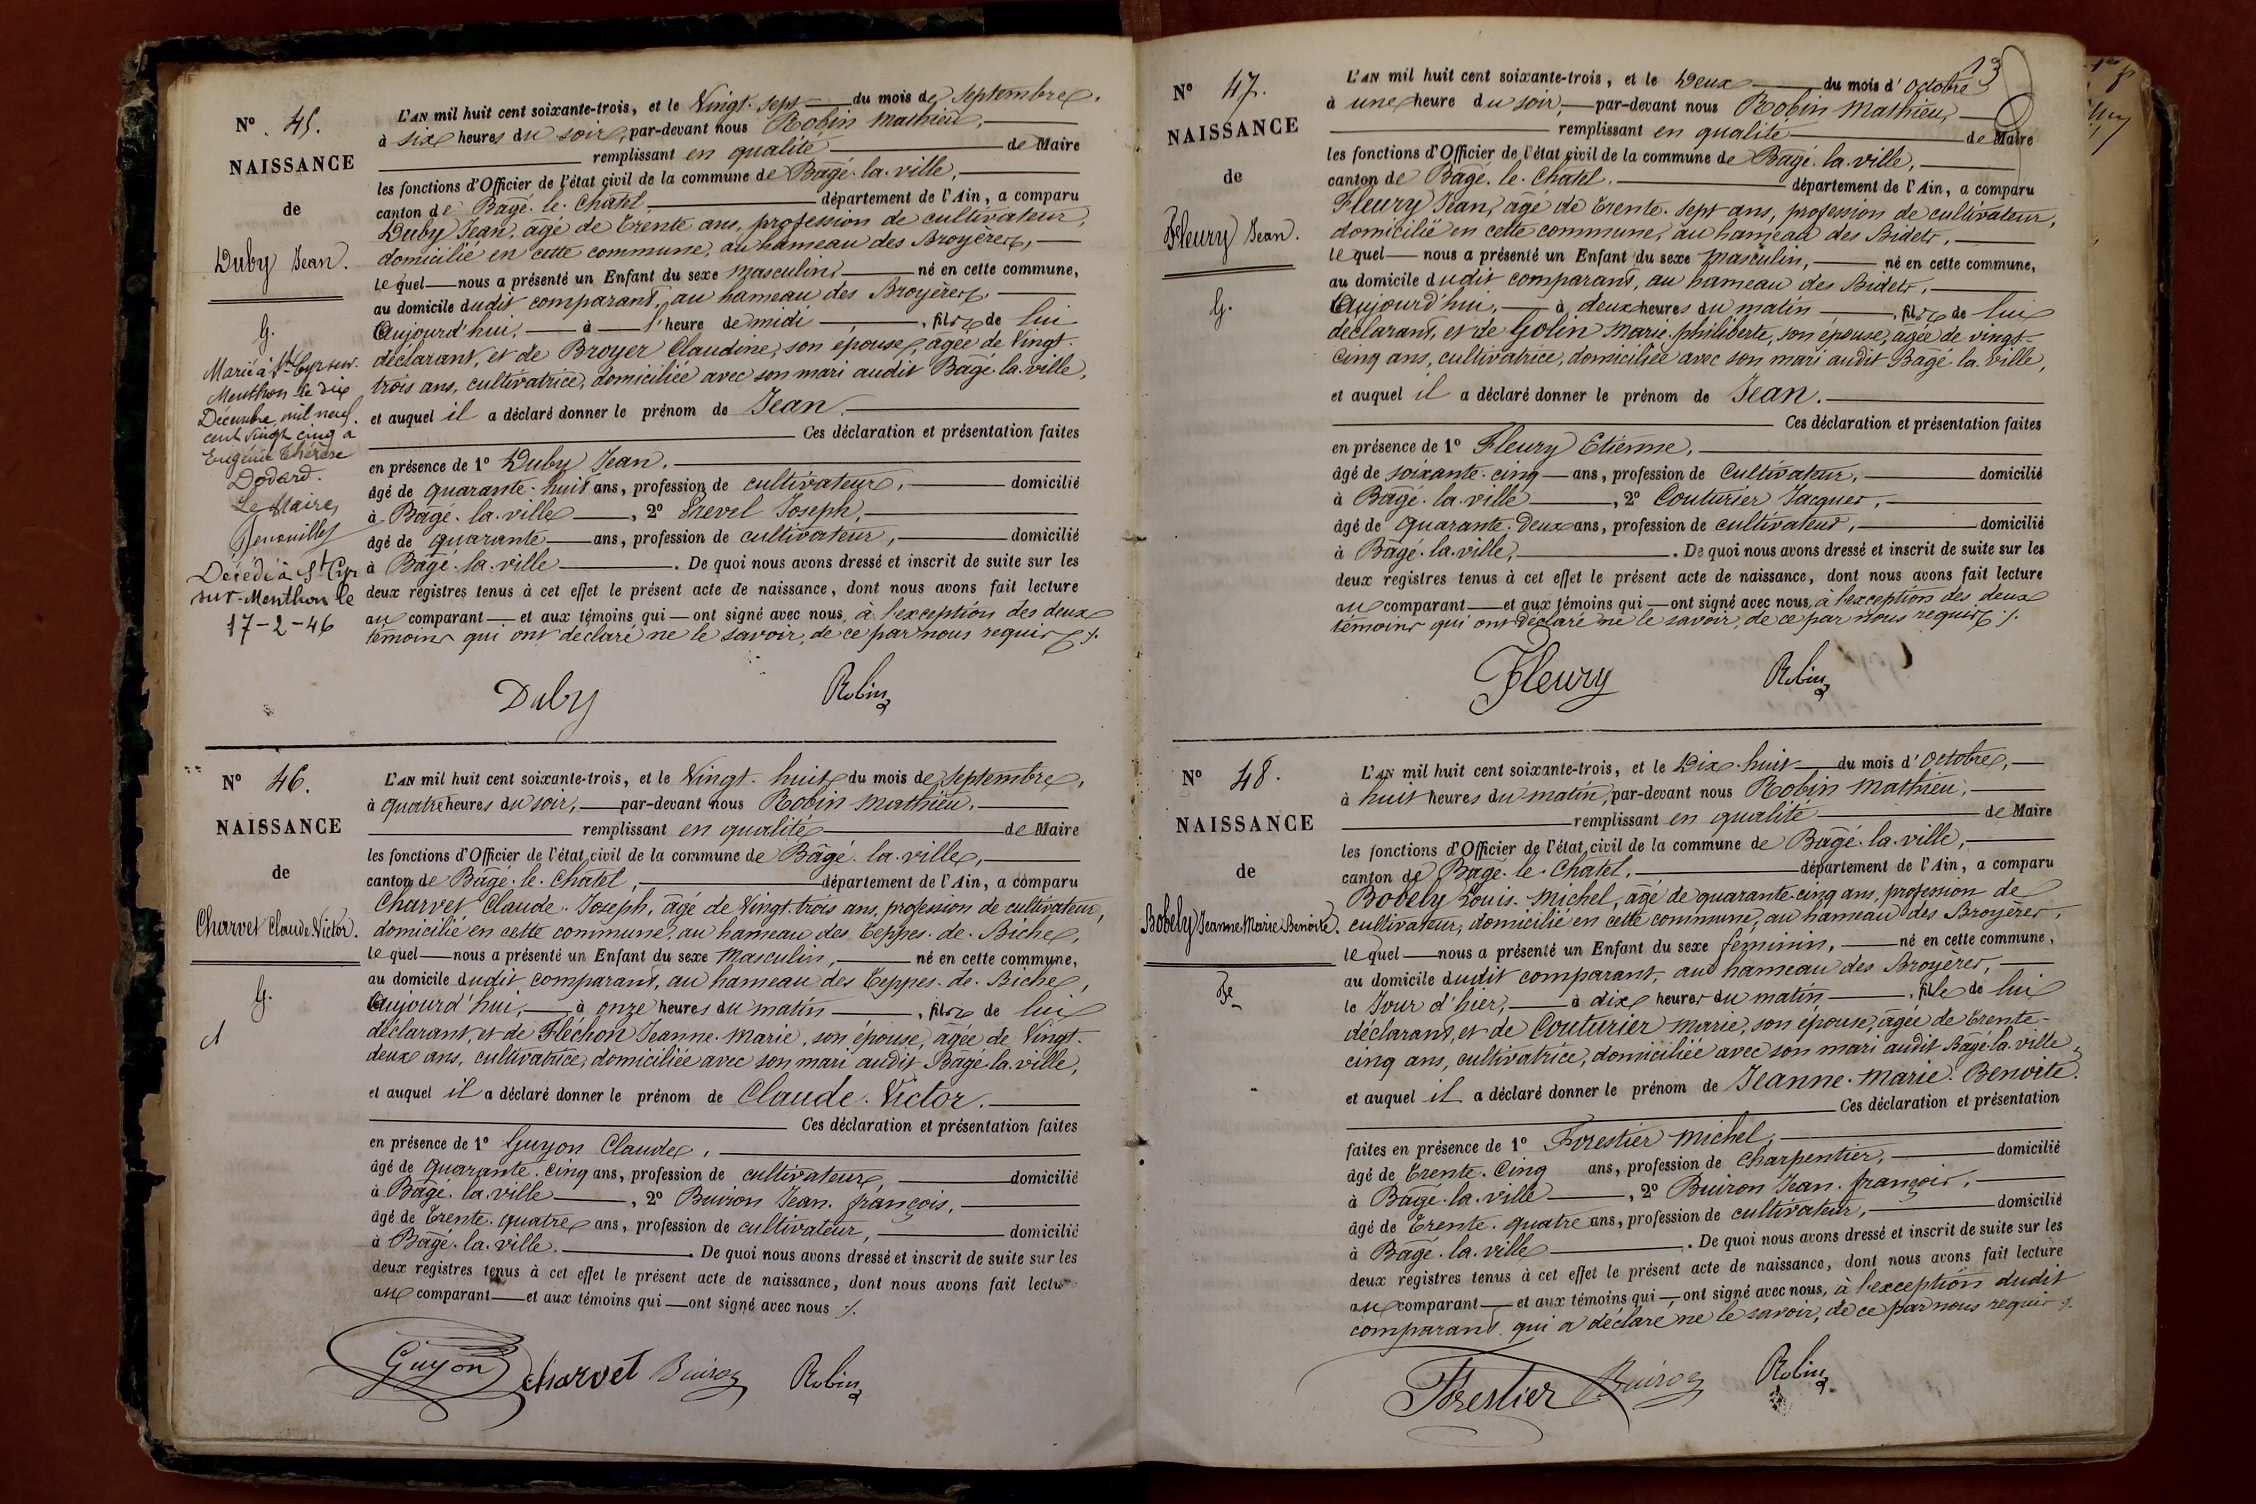 N° 45.
NAISSANCE
de
Duby Jean.
G.
Marié à St Cyr sur.
Menthon le dix
Décembre mil neuf.
cent vingt cinq à
Eugénie Thérèse
Dodard.
Le Maire,
Décédé à St Cyr
sur-Menthon le
17-2-46
L'AN mil huit cent soixante-trois, et le Vingt-sept du mois de septembre,
à six heures du soir, par-devant nous Robin Mathieu,
remplissant en qualité de Maire
les fonctions d'Officier de l'état civil de la commune de Bâgé-la-ville,
canton de Bâgé-le-Chatel, département de l'Ain, a comparu
Duby Jean, âgé de trente ans, profession de cultivateur,
domicilié en cette commune, au hameau des Broyères,
lequel nous a présenté un Enfant du sexe masculin né en cette commune,
au domicile dudit comparant, au hameau des Broyères,
Aujourd'hui, à l'heure de midi, fils de lui
déclarant, et de Broyer Claudine, son épouse, âgée de Vingt-
trois ans, cultivatrice, domiciliée avec son mari audit Bâgé-la-ville,
et auquel il a déclaré donner le prénom de Jean.
Ces déclaration et présentation faites
en présence de 1° Duby Jean.
âgé de quarante-huit ans, profession de cultivateur, domicilié
à Bâgé-la-ville, 2° Prevel Joseph,
âgé de quarante ans, profession de cultivateur, domicilié
à Bâgé-la-ville. De quoi nous avons dressé et inscrit de suite sur les
deux registres tenus à cet effet le présent acte de naissance, dont nous avons fait lecture
au comparant et aux témoins qui ont signé avec nous, à l'exception des deux
témoins qui ont déclaré ne le savoir, de ce par nous requis ./.
Duby Robin
N° 46.
NAISSANCE
de
Charvet Claude Victor.
G.
L'AN mil huit cent soixante-trois, et le Vingt-huit du mois de septembre,
à quatre heures du soir, par-devant nous Robin Mathieu,
remplissant en qualité de Maire
les fonctions d'Officier de l'état civil de la commune de Bâgé-la-ville,
canton de Bâgé-le-Chatel, département de l'Ain, a comparu
Charvet Claude-Joseph, âgé de Vingt-trois ans, profession de cultivateur,
domicilié en cette commune, au hameau des Teppes-de-Biche,
lequel nous a présenté un Enfant du sexe masculin, né en cette commune,
au domicile dudit comparant, au hameau des Teppes-de-Biche,
Aujourd'hui, à onze heures du matin, fils de lui
déclarant, et de Fléchon Jeanne-Marie, son épouse, âgée de Vingt-
deux ans, cultivatrice, domiciliée avec son mari audit Bâgé-la-ville,
et auquel il a déclaré donner le prénom de Claude-Victor.
Ces déclaration et présentation faites
en présence de 1° Guyon Claude,
âgé de quarante-cinq ans, profession de cultivateur, domicilié
à Bâgé-la-ville, 2° Buiron Jean-françois,
âgé de trente-quatre ans, profession de cultivateur, domicilié
à Bâgé-la-ville. De quoi nous avons dressé et inscrit de suite sur les
deux registres tenus à cet effet le présent acte de naissance, dont nous avons fait lecture
au comparant et aux témoins qui ont signé avec nous ./.
Guyon Charvet Buiron Robin
13
N° 47.
NAISSANCE
de
Fleury Jean.
G.
L'AN mil huit cent soixante-trois, et le Deux du mois d'octobre
à une heure du soir, par-devant nous Robin Mathieu,
remplissant en qualité de Maire
les fonctions d'Officier de l'état civil de la commune de Bâgé-la-ville,
canton de Bâgé-le-Chatel, département de l'Ain, a comparu
Fleury Jean, âgé de trente-sept ans, profession de cultivateur,
domicilié en cette commune, au hameau des Bidets,
lequel nous a présenté un Enfant du sexe masculin, né en cette commune,
au domicile dudit comparant, au hameau des Bidets,
Aujourd'hui, à deux heures du matin, fils de lui
déclarant, et de Golin Marie-philiberte, son épouse, âgée de vingt-
cinq ans, cultivatrice, domiciliée avec son mari audit Bâgé-la-ville,
et auquel il a déclaré donner le prénom de Jean.
Ces déclaration et présentation faites
en présence de 1° Fleury Etienne,
âgé de soixante-cinq ans, profession de Cultivateur, domicilié
à Bâgé-la-ville, 2° Couturier Jacques,
âgé de quarante-deux ans, profession de cultivateur, domicilié
à Bâgé-la-ville,. De quoi nous avons dressé et inscrit de suite sur les
deux registres tenus à cet effet le présent acte de naissance, dont nous avons fait lecture
au comparant et aux témoins qui ont signé avec nous, à l'exception des deux
témoins qui ont déclaré ne le savoir, de ce par nous requis ./.
Fleury Robin
N° 48.
NAISSANCE
de
Bobely Jeanne Marie Benoite.
Fe
L'AN mil huit cent soixante-trois, et le Dix-huit du mois d'octobre,
à huit heures du matin, par-devant nous Robin Mathieu,
remplissant en qualité de Maire
les fonctions d'Officier de l'état civil de la commune de Bâgé-la-ville,
canton de Bâgé-le-Chatel, département de l'Ain, a comparu
Bobely Louis-Michel, âgé de quarante-cinq ans, profession de
cultivateur, domicilié en cette commune, au hameau des Broyères,
lequel nous a présenté un Enfant du sexe féminin, né en cette commune,
au domicile dudit comparant, au hameau des Broyères,
le Jour d'hier, à dix heures du matin, fille de lui
déclarant, et de Couturier Marie, son épouse, âgée de trente-
cinq ans, cultivatrice, domiciliée avec son mari audit Bâgé-la-ville,
et auquel il a déclaré donner le prénom de Jeanne-Marie-Benoite.
Ces déclaration et présentation
faites en présence de 1° Forestier Michel,
âgé de trente-cinq ans, profession de charpentier, domicilié
à Bâgé-la-ville, 2° Buiron Jean-françois,
âgé de trente-quatre ans, profession de cultivateur, domicilié
à Bâgé-la-ville. De quoi nous avons dressé et inscrit de suite sur les
deux registres tenus à cet effet le présent acte de naissance, dont nous avons fait lecture
au comparant et aux témoins qui ont signé avec nous, à l'exception dudit
comparant qui a déclaré ne le savoir, de ce par nous requis ./.
Forestier Buiron Robin